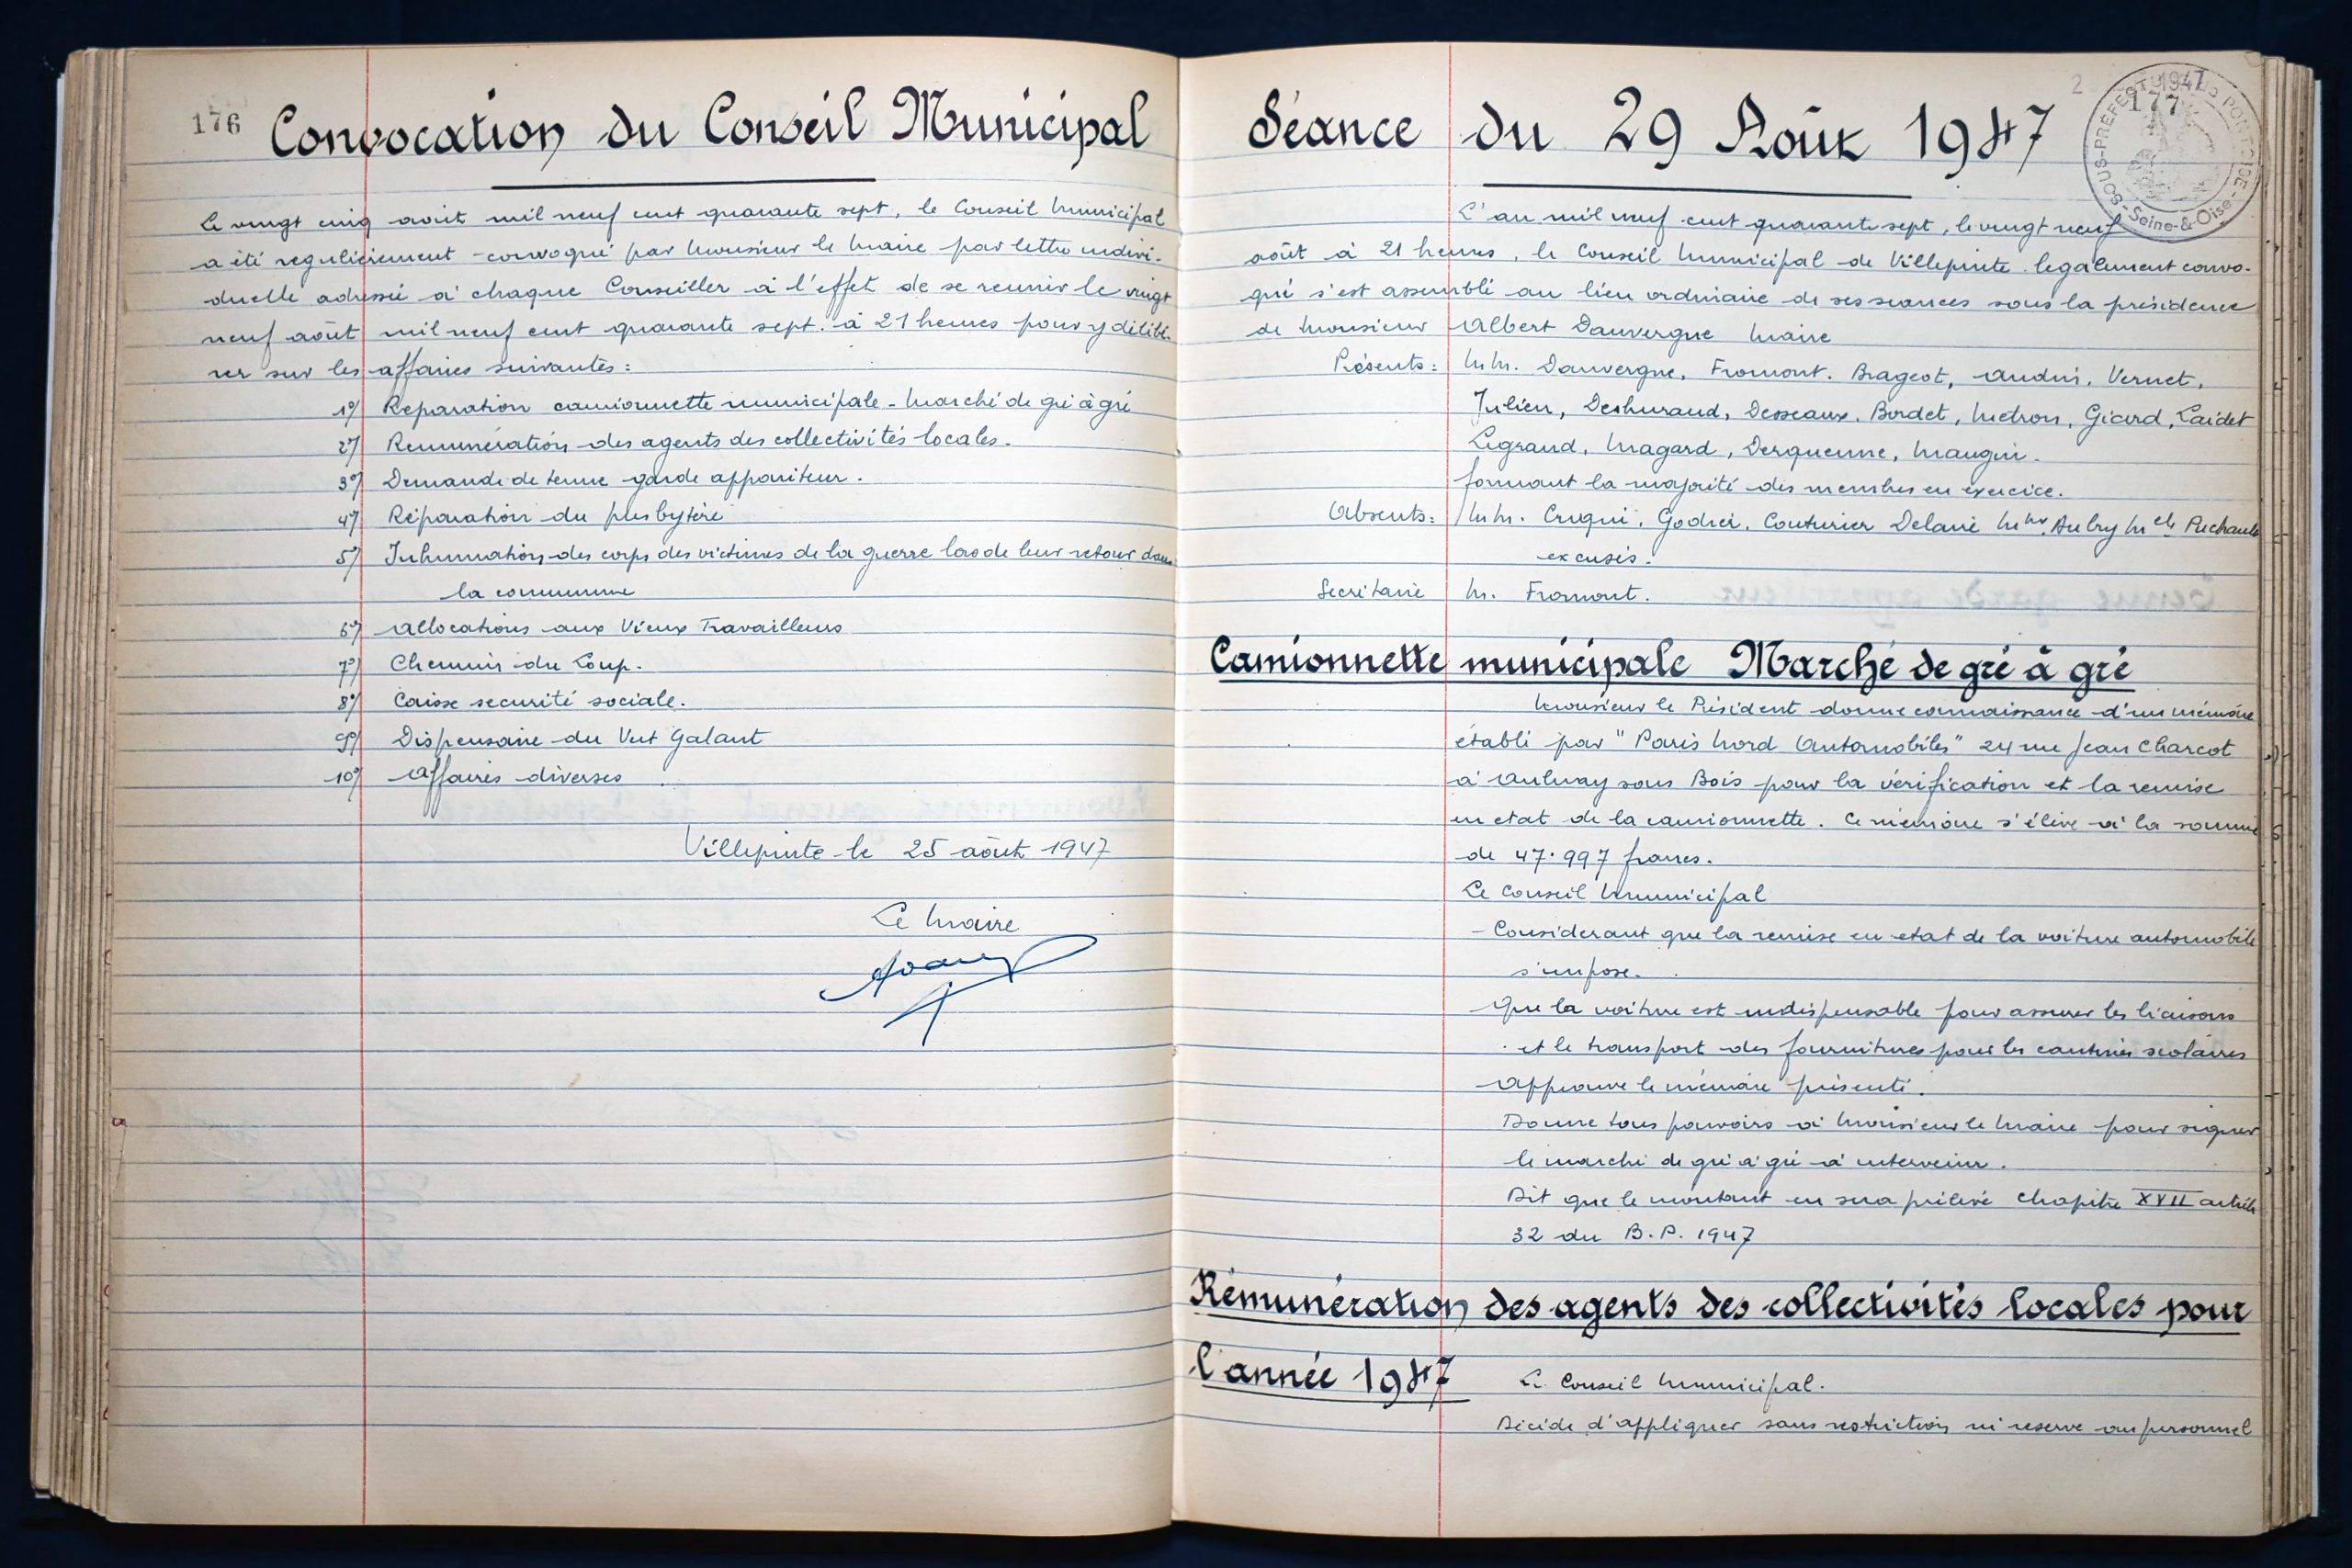 176
Convocation du Conseil Municipal
Le vingt cinq août mil neuf cent quarante sept, le Conseil Municipal
a été regulièrement convoqué par Monsieur le Maire par lettre indivi-
duelle adressée à chaque Conseiller à l'effet de se reunir le vingt
neuf août mil neuf cent quarante sept. à 21 heures pour y délibé-
rer sur les affaires suivantes :
1°/ Reparation camionnette municipale - Marché de gré à gré
2°/ Remunération des agents des collectivités locales.
3°/ Demande de tenue garde appariteur.
4°/ Réparation du presbytère
5°/ Inhumation des corps des victimes de la guerre lors de leur retour dans
la commune
6°/ Allocations aux Vieux Travailleurs
7°/ Chemin du Loup.
8°/ Caisse securité sociale.
9°/ Dispensaire du Vert Galant
10°/ Affaires diverses
Villepinte le 25 août 1947
Le Maire
Séance du 29 Août 1947
177
SOUS-PRÉFECTURE DE PONTOISE
1947
Seine-&-Oise
L'an mil neuf cent quarante sept, le vingt neuf
août à 21 heures, le Conseil Municipal de Villepinte légalement convo-
qué s'est assemblé au lieu ordinaire de ses seances sous la présidence
de Monsieur Albert Dauvergne Maire
Présents : MM. Dauvergne, Fromont. Brageot, Audin, Vernet,
Julien, Desseaux, Bordet, Medron, Gicard, Laidet
Legrand, Magard, Derquenne, Maugin.
formant la majorité des membres en exercice.
Absents : MM. Cruqui, Godrei, Couturier Delarié Mme Aubry Melle
excusés.
Secrétaire M. Fromont.
Camionnette municipale Marché de gré à gré
Monsieur le Président donne connaissance d'un mémoire
établi par "Paris Nord Automobiles" 24 rue Jean Charcot
à Aulnay sous Bois pour la vérification et la remise
en etat de la camionnette. Ce mémoire s'élève à la somme
de 47.997 francs.
Le Conseil Municipal
- Considerant que la remise en etat de la voiture automobile
s'impose.
Que la voiture est indispensable pour assurer les liaisons
et le transport des fournitures pour les cantines scolaires
Approuve le mémoire présenté.
Donne tous pouvoirs à Monsieur le Maire pour signer
le marché de gré à gré à intervenir.
Dit que le montant en sera prélevé chapitre XVII article
32 du B.P. 1947
Rémunération des agents des collectivités locales pour
l'année 1947 Le Conseil Municipal.
Décide d'appliquer sans restriction ni reserve au personnel